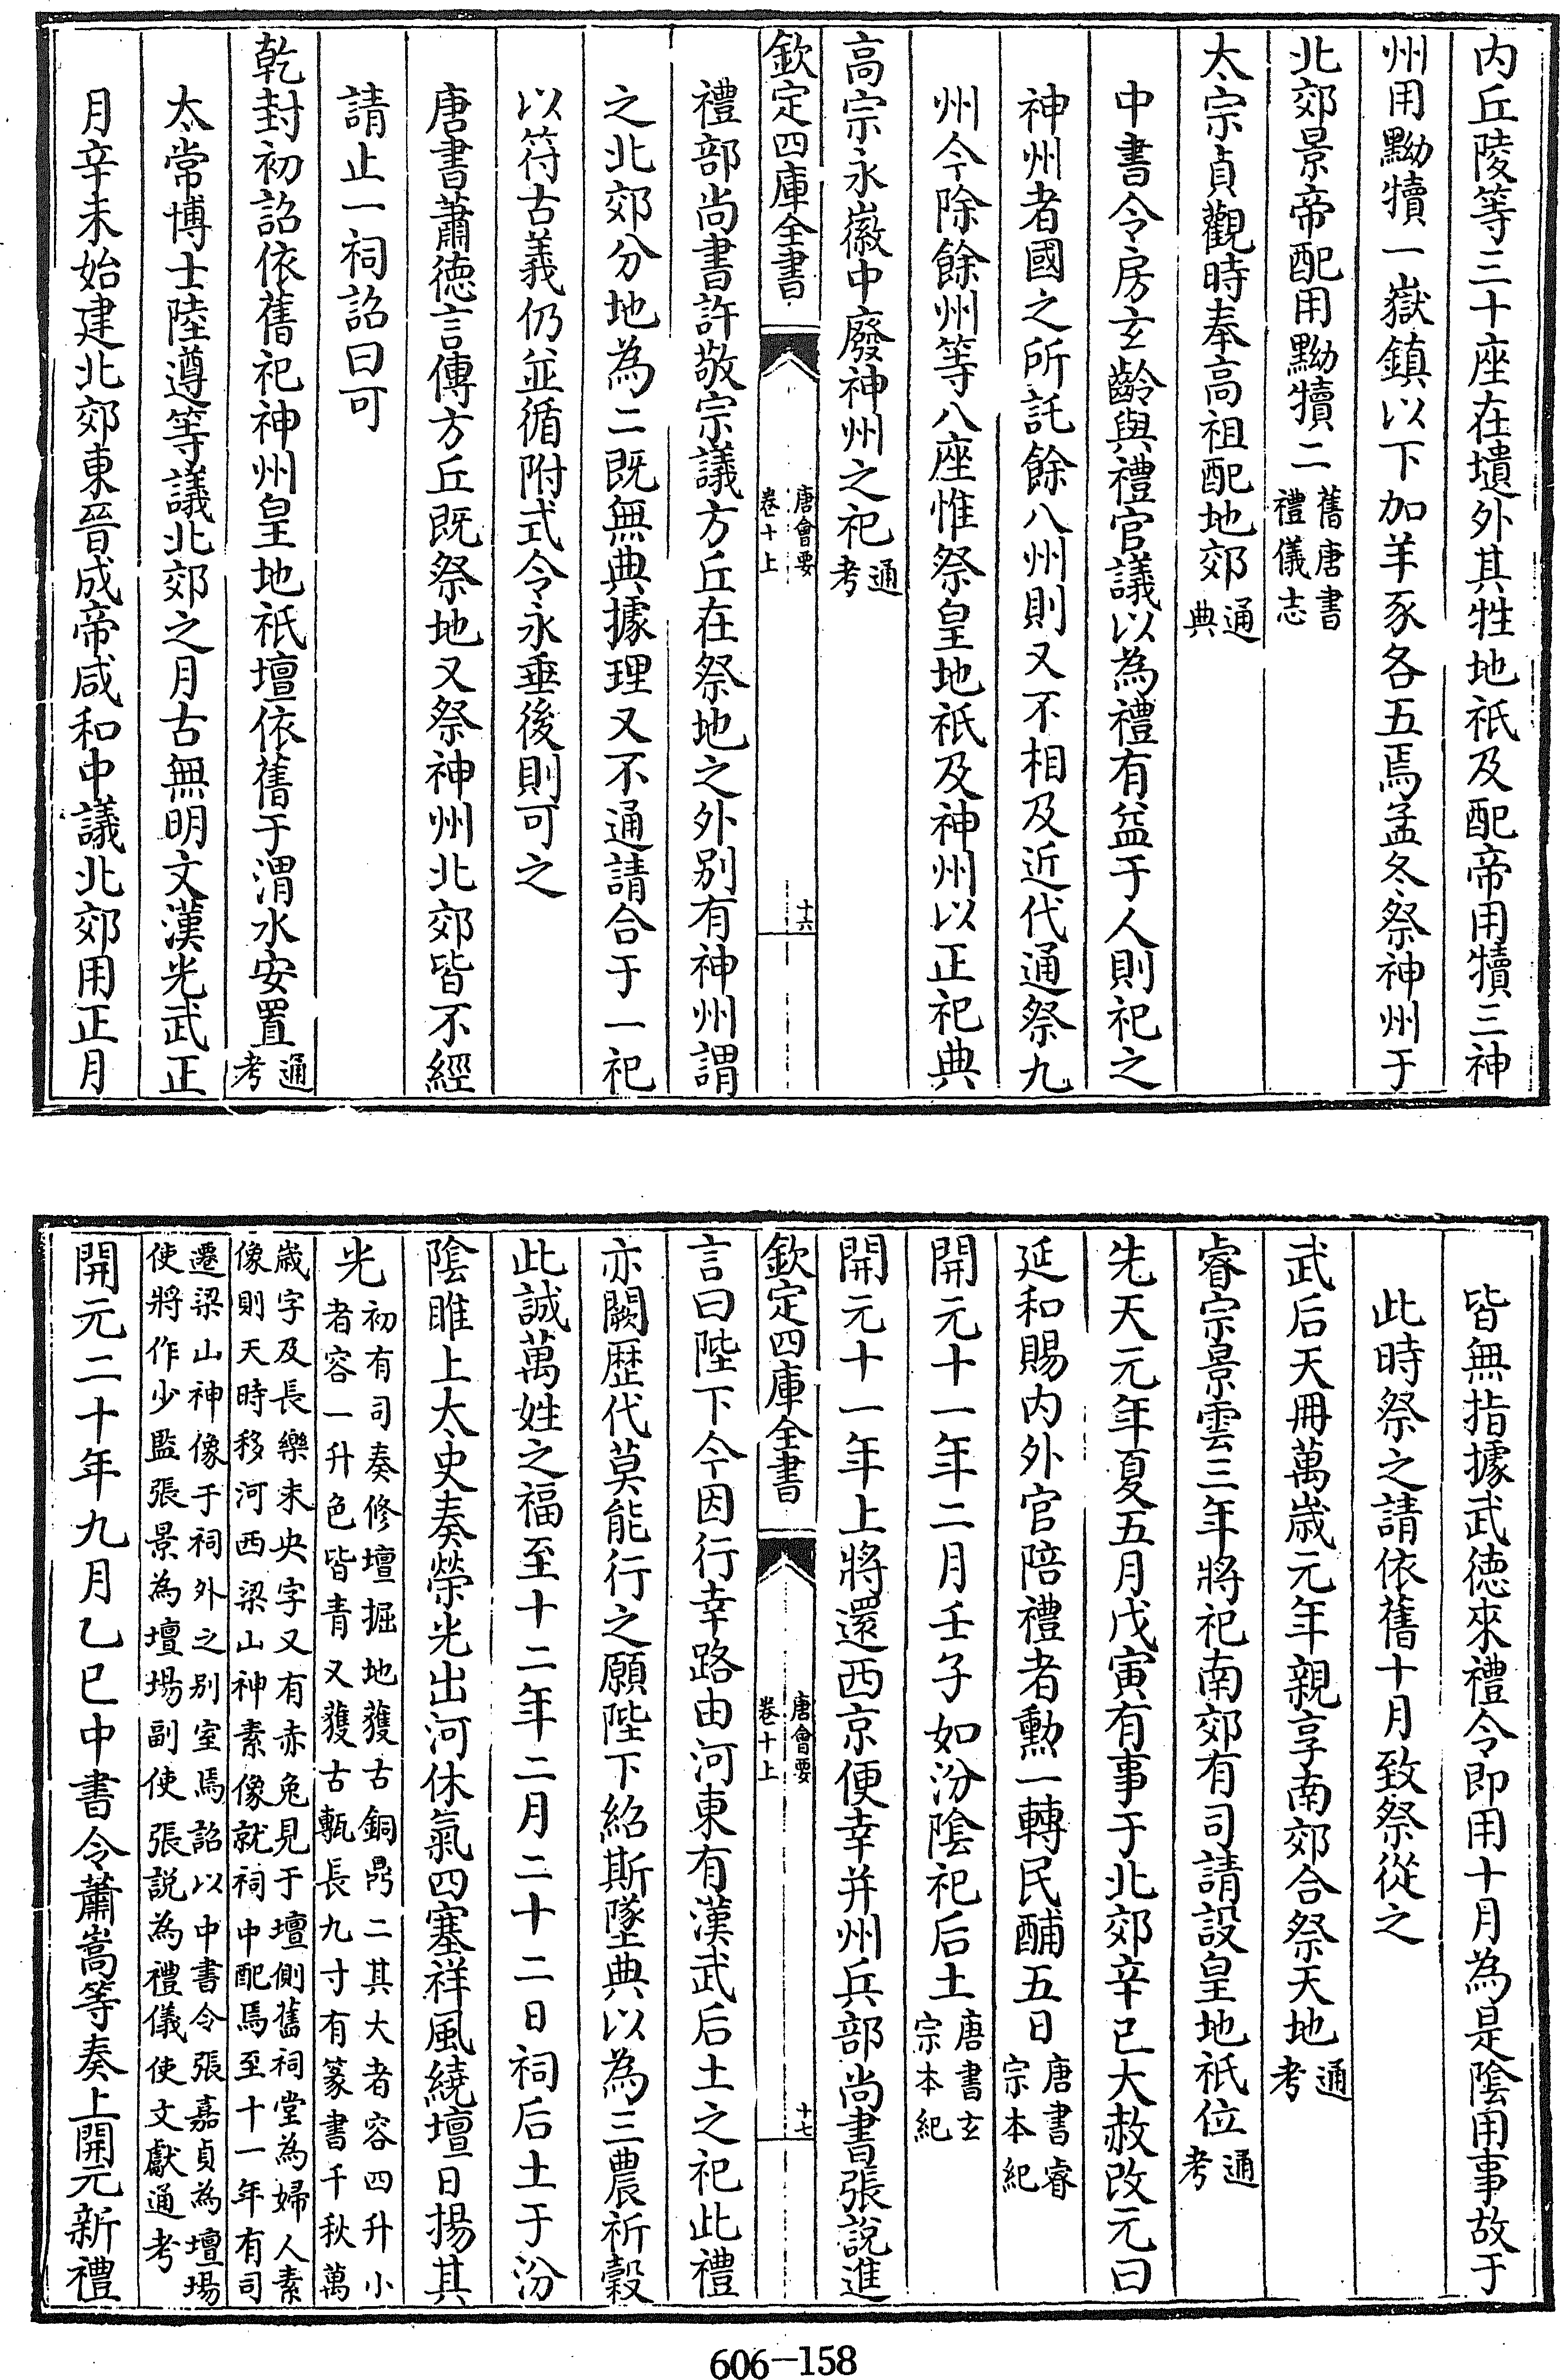 内丘陵等三十座在壝外其牲地祇及配帝用犢三神
州用黝犢一嶽鎮以下加羊豕各五焉孟冬祭神州于
北郊景帝配用黝犢二舊唐書
禮儀志
太宗貞觀時奉高祖配地郊通
典
中書令房玄齡與禮官議以為禮有益于人則祀之
神州者國之所託餘八州則又不相及近代通祭九
州今除餘州等八座惟祭皇地祇及神州以正祀典
高宗永徽中廢神州之祀通
考
欽定四庫全書
唐會要
卷十上
十六
禮部尚書許敬宗議方丘在祭地之外别有神州謂
之北郊分地為二既無典據理又不通請合于一祀
以符古義仍並循附式令永垂後則可之
唐書蕭德言傳方丘既祭地又祭神州北郊皆不經
請止一祠詔曰可
乾封初詔依舊祀神州皇地祇壇依舊于渭水安置通
考
太常博士陸遵等議北郊之月古無明文漢光武正
月辛未始建北郊東晉成帝咸和中議北郊用正月
皆無指據武德來禮令即用十月為是陰用事故于
此時祭之請依舊十月致祭從之
武后天冊萬歲元年親享南郊合祭天地通
考
睿宗景雲三年將祀南郊有司請設皇地祇位通
考
先天元年夏五月戊寅有事于北郊辛巳大赦改元曰
延和賜内外官陪禮者勲一轉民酺五日唐書睿
宗本紀
開元十一年二月壬子如汾陰祀后土唐書玄
宗本紀
開元十一年上將還西京便幸并州兵部尚書張說進
欽定四庫全書
唐會要
卷十上
十七
言曰陛下今因行幸路由河東有漢武后土之祀此禮
亦闕歴代莫能行之願陛下紹斯墜典以為三農祈穀
此誠萬姓之福至十二年二月二十二日祠后土于汾
陰脽上太史奏榮光出河休氣四塞祥風繞壇日揚其
光初有司奏修壇掘地獲古銅鼎二其大者容四升小
者容一升色皆青又獲古甎長九寸有篆書千秋萬
歲字及長樂未央字又有赤兔見于壇側舊祠堂為婦人素
像則天時移河西梁山神素像就祠中配焉至十一年有司
遷梁山神像于祠外之别室焉詔以中書令張嘉貞為壇場
使將作少監張景為壇場副使張說為禮儀使文獻通考
開元二十年九月乙巳中書令蕭嵩等奏上開元新禮
606-158